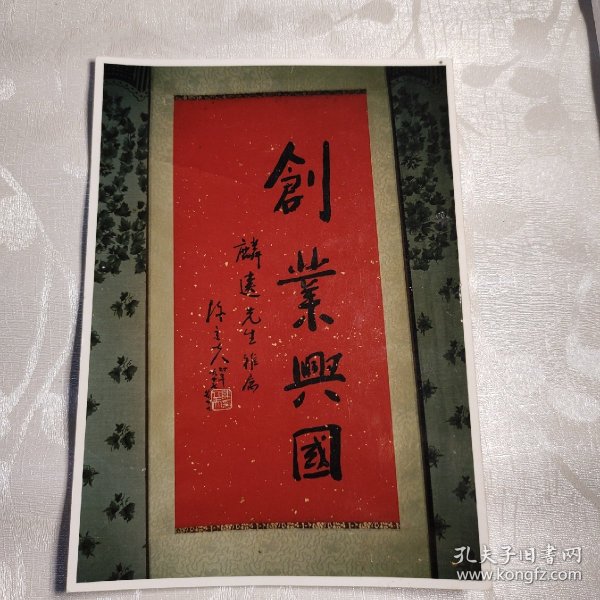 創業興國
麟遠先生雅属
孔夫子旧书网
www.kongfz.com